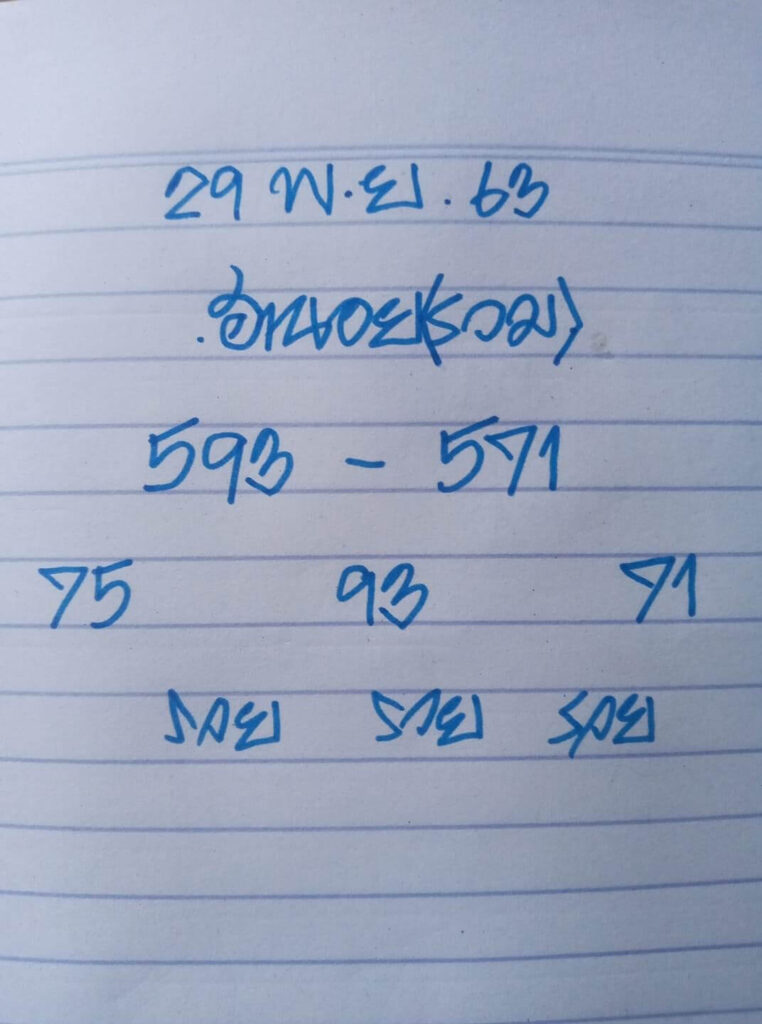 29 พ.ย. 63
.ฮานอย(รวม)
593 - 571
75 93 71
รวย รวย รวย